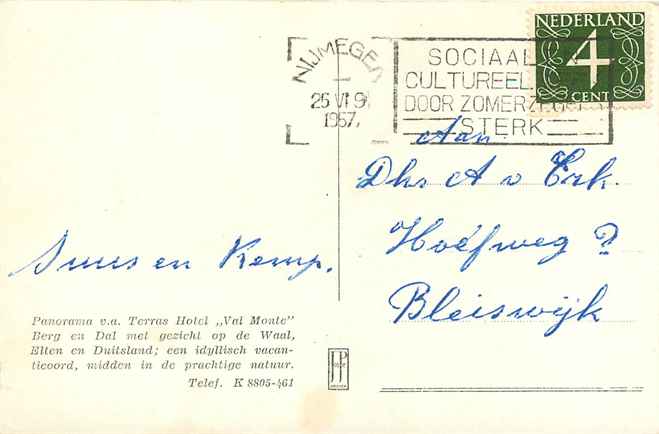 NEDERLAND
4
CENT
NIJMEGEN
25 VI 9
1957
SOCIAAL
CULTUREEL
DOOR ZOMERZEGELS
STERK
Aan
Dhr A v Erk.
Hoéfweg ?
Bleiswijk
Suus en Kemp.
Panorama v.a. Terras Hotel „Val Monte"
Berg en Dal met gezicht op de Waal,
Elten en Duitsland; een idyllisch vacan-
tieoord, midden in de prachtige natuur.
Telef. K 8805-461